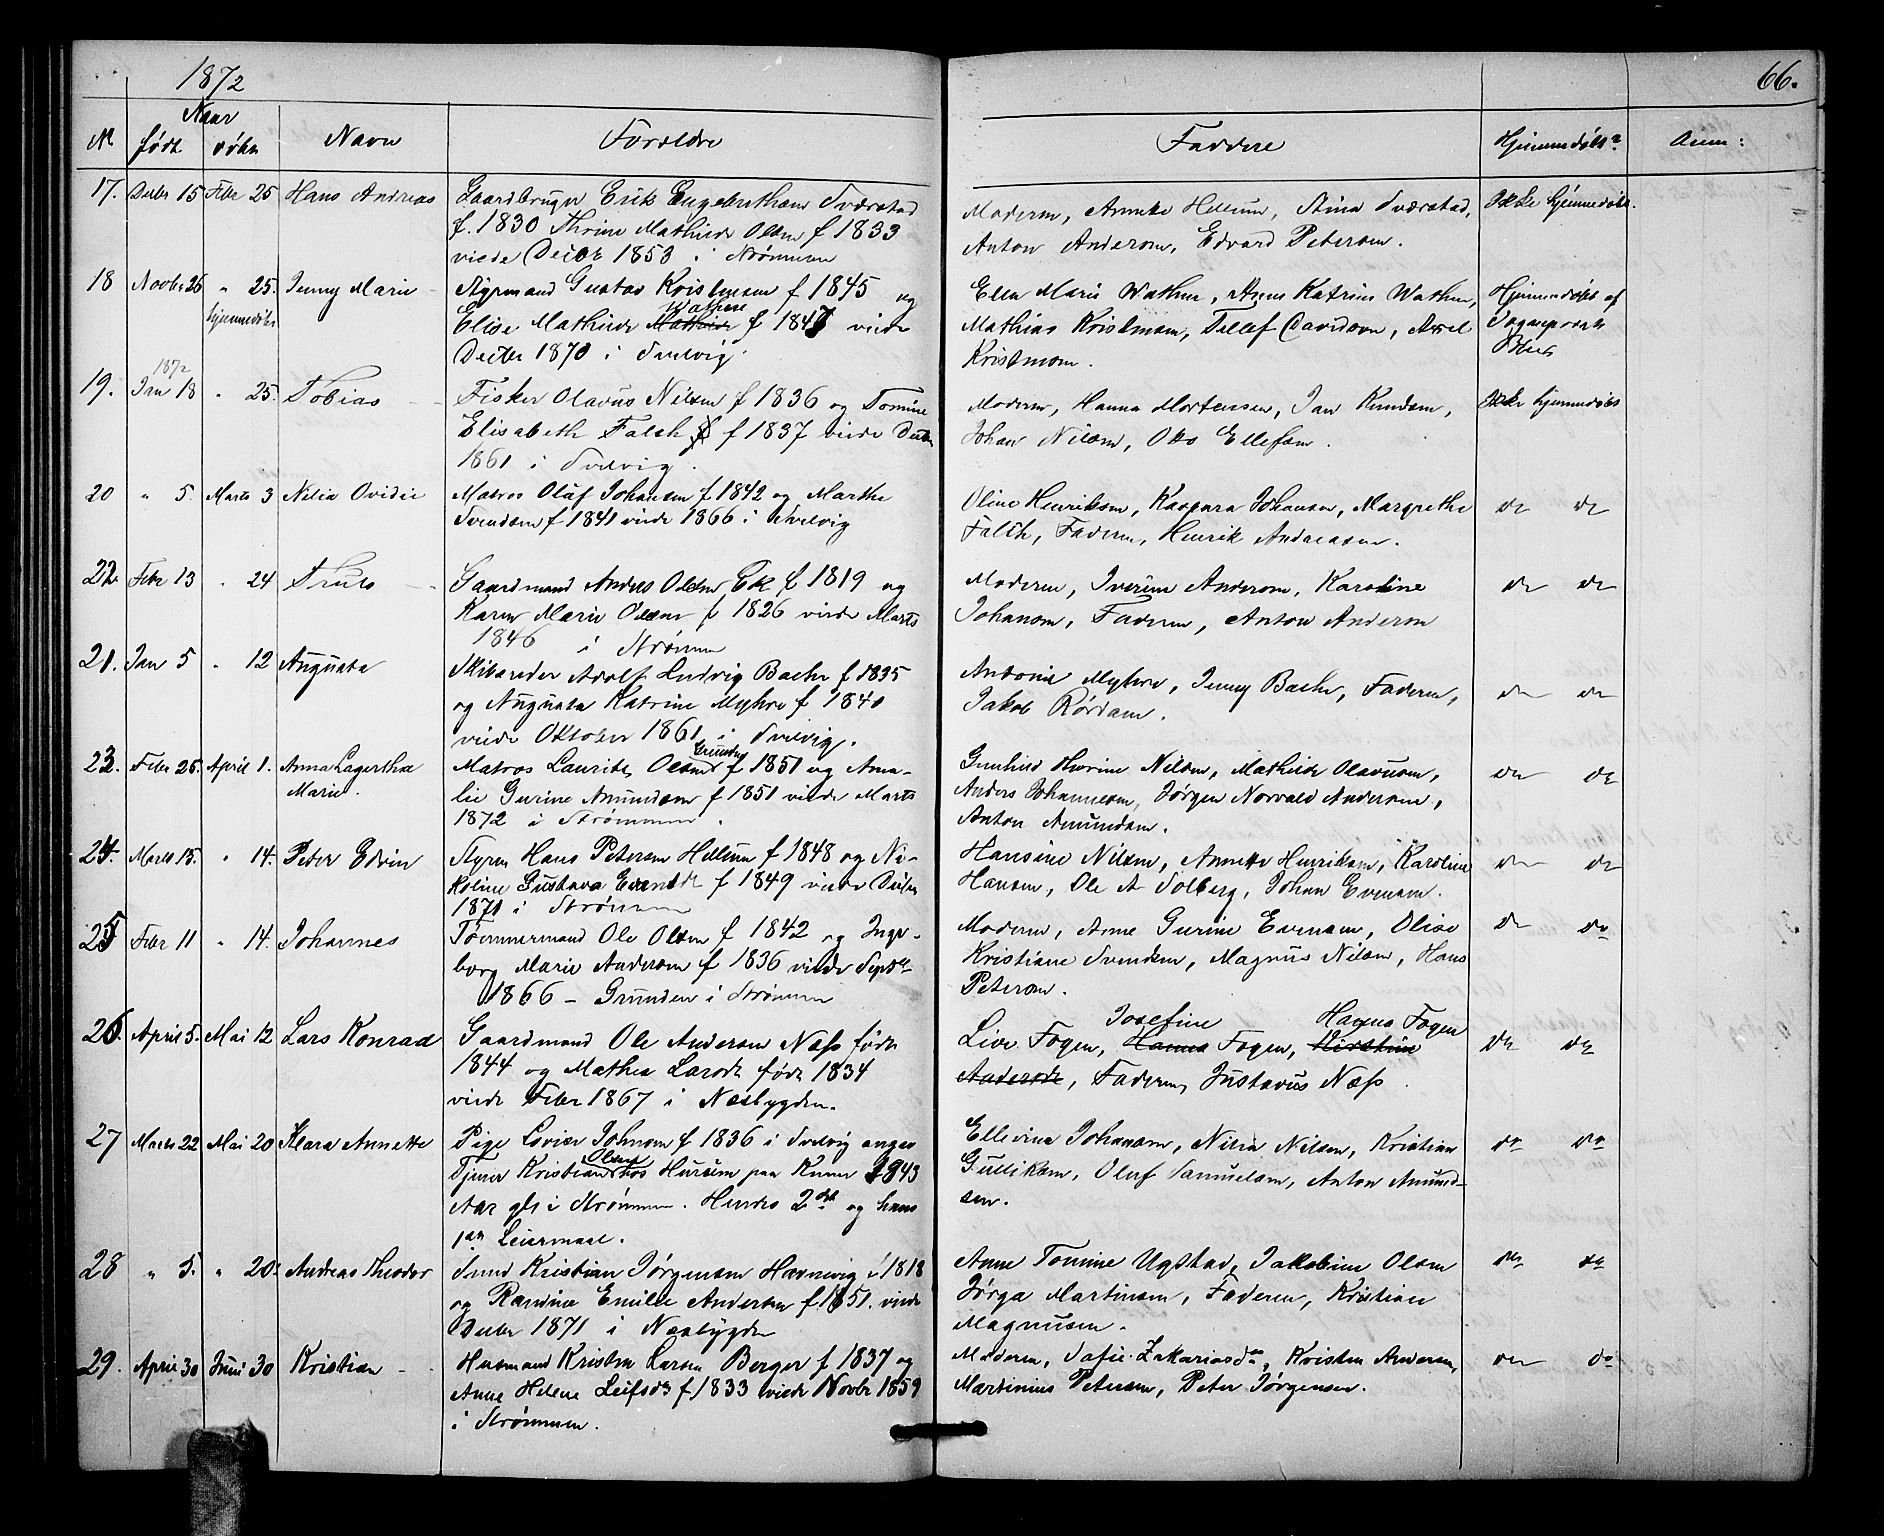 1872
66.
Naar
No født døbt Navn Forældre Faddere Hjemmedøbt? Anm:
17. Decbr 15 Febr 25 Hans Andreas Gaardbruger Erik Engebrethsen Sværstad
f. 1830 Thrine Mathilde Olsen f 1833
viede Decbr 1853 i Strømmen
Moderen, Anneke Hellum, Stina Sværstad,
Anton Andersen, Edvard Petersen.
Ikke hjemmedøbt.
18 Novbr 26 " 25. Jenny Marie
hjemmedøbt
Styrmand Gustav Kristensen f 1845 og
Wathne
Elise Mathilde Mathilde f 1847 viede
Decbr 1870 i Svelvig.
Ellen Marie Wathne, Anne Katrine Wathne,
Mathias Kristensen, Tellef Davidsen, Axel
Kristensen.
Hjemmedøbt af
Sognepræst
1872
19. Jan 18 " 25. Tobias
Fisker Olavus Nilsen f 1836 og Tomine
Elisabeth Falch f 1837 viede Decbr
1861 i Svelvig.
Moderen, Hanna Mortensen, Jan Knudsen,
Johan Nilsen, Otto Ellefsen.
Ikke hjemmedøbt
20 " 5. Marts 3 Nilia Ovidie
Matros Oluf Johansen f 1842 og Marthe
Svendsen f 1841 viede 1866 i Svelvig
Oline Henriksen, Kaspara Johansen, Margrethe
Falch, Faderen, Henrik Andreasen.
do do
22. Febr 13 " 24 Truls
Gaardmand Anders Olsen Ek f 1819 og
Karen Marie Olsen f 1826 viede Marts
1846 i Strømmen
Moderen, Iverine Andersen, Karoline
Johansen, Faderen, Anton Andersen
do do
21. Jan 5 " 12 Augusta
Skibsreder Adolf Ludvig Bache f 1835
og Augusta Katrine Myhre f 1840
viede Oktober 1861 i Svelvig.
Antonie Myhre, Jenny Bache, Faderen,
Jakob Rørdam.
do do
23. Febr 25. April 1. Anna Lagertha
Marie.
Grunden
Matros Laurits Olsen f 1851 og Ama-
lie Gurine Amundsen f 1851 viede Marts
1872 i Strømmen.
Gunhild Hurine Nilsen, Mathilde Olavusen,
Anders Johannesen, Jørgen Norvald Andersen,
Anton Amundsen.
do do
24. Marts 15. " 14. Peter Edvin
Styrm Hans Petersen Hellum f 1848 og Ni-
koline Gustava Evensdt f 1849 viede Decbr
1871 i Strømmen
Hansine Nilsen, Annette Henriksen, Karoline
Hansen, Ole A Solberg, Johan Evensen.
do do
25 Febr 11 " 14. Johannes
Tømmermand Ole Olsen f 1842 og Inge-
borg Marie Andersen f 1836 viede Septbr
1866 – Grunden i Strømmen
Moderen, Anne Gurine Evensen, Olise
Kristiane Svendsen, Magnus Nilsen, Hans
Petersen.
do do
26. April 5. Mai 12 Lars Konrad
Gaardmand Ole Andersen Næss født
1844 og Mathea Larsdt født 1834
viede Febr 1867 i Næsbygden.
Josefine Hanna Fogen
Live Fogen, Hanna Fogen, Kirstine
Andersdt, Faderen, Gustavus Næss.
do do
27 Marts 22 Mai 20 Klara Annette
Pige Lovise Johnsen f 1836 i Svelvig angav
Olsen
Tjener Kristian hos Hursum paa Knem 2943
Aar gl i Strømmen. Hendes 2det og hans
1ste Leiermaal.
Ellevina Johansen, Nilia Nilsen, Kristian
Gulliksen, Oluf Samuelsen, Anton Amund-
sen.
do do
28 " 5. " 20. Andreas Theodor
Smed Kristian Jørgensen Havnevig f 1818
og Randine Emilie Andersen f 1851. viede
Decbr 1871 i Næsbygden
Anne Tomine Ugstad, Jakobine Olsen
Jørga Martinsen, Faderen, Kristian
Magnusen.
do do
29. April 30 Juni 30 Kristian
Husmand Kristen Larsen Berger f 1837 og
Anne Helene Leifsdt f 1833 viede Novbr 1859
i Strømmen.
Moderen, Sofie Zakariasdtr, Kristen Andersen,
Martinius Petersen, Peter Jørgensen.
do do